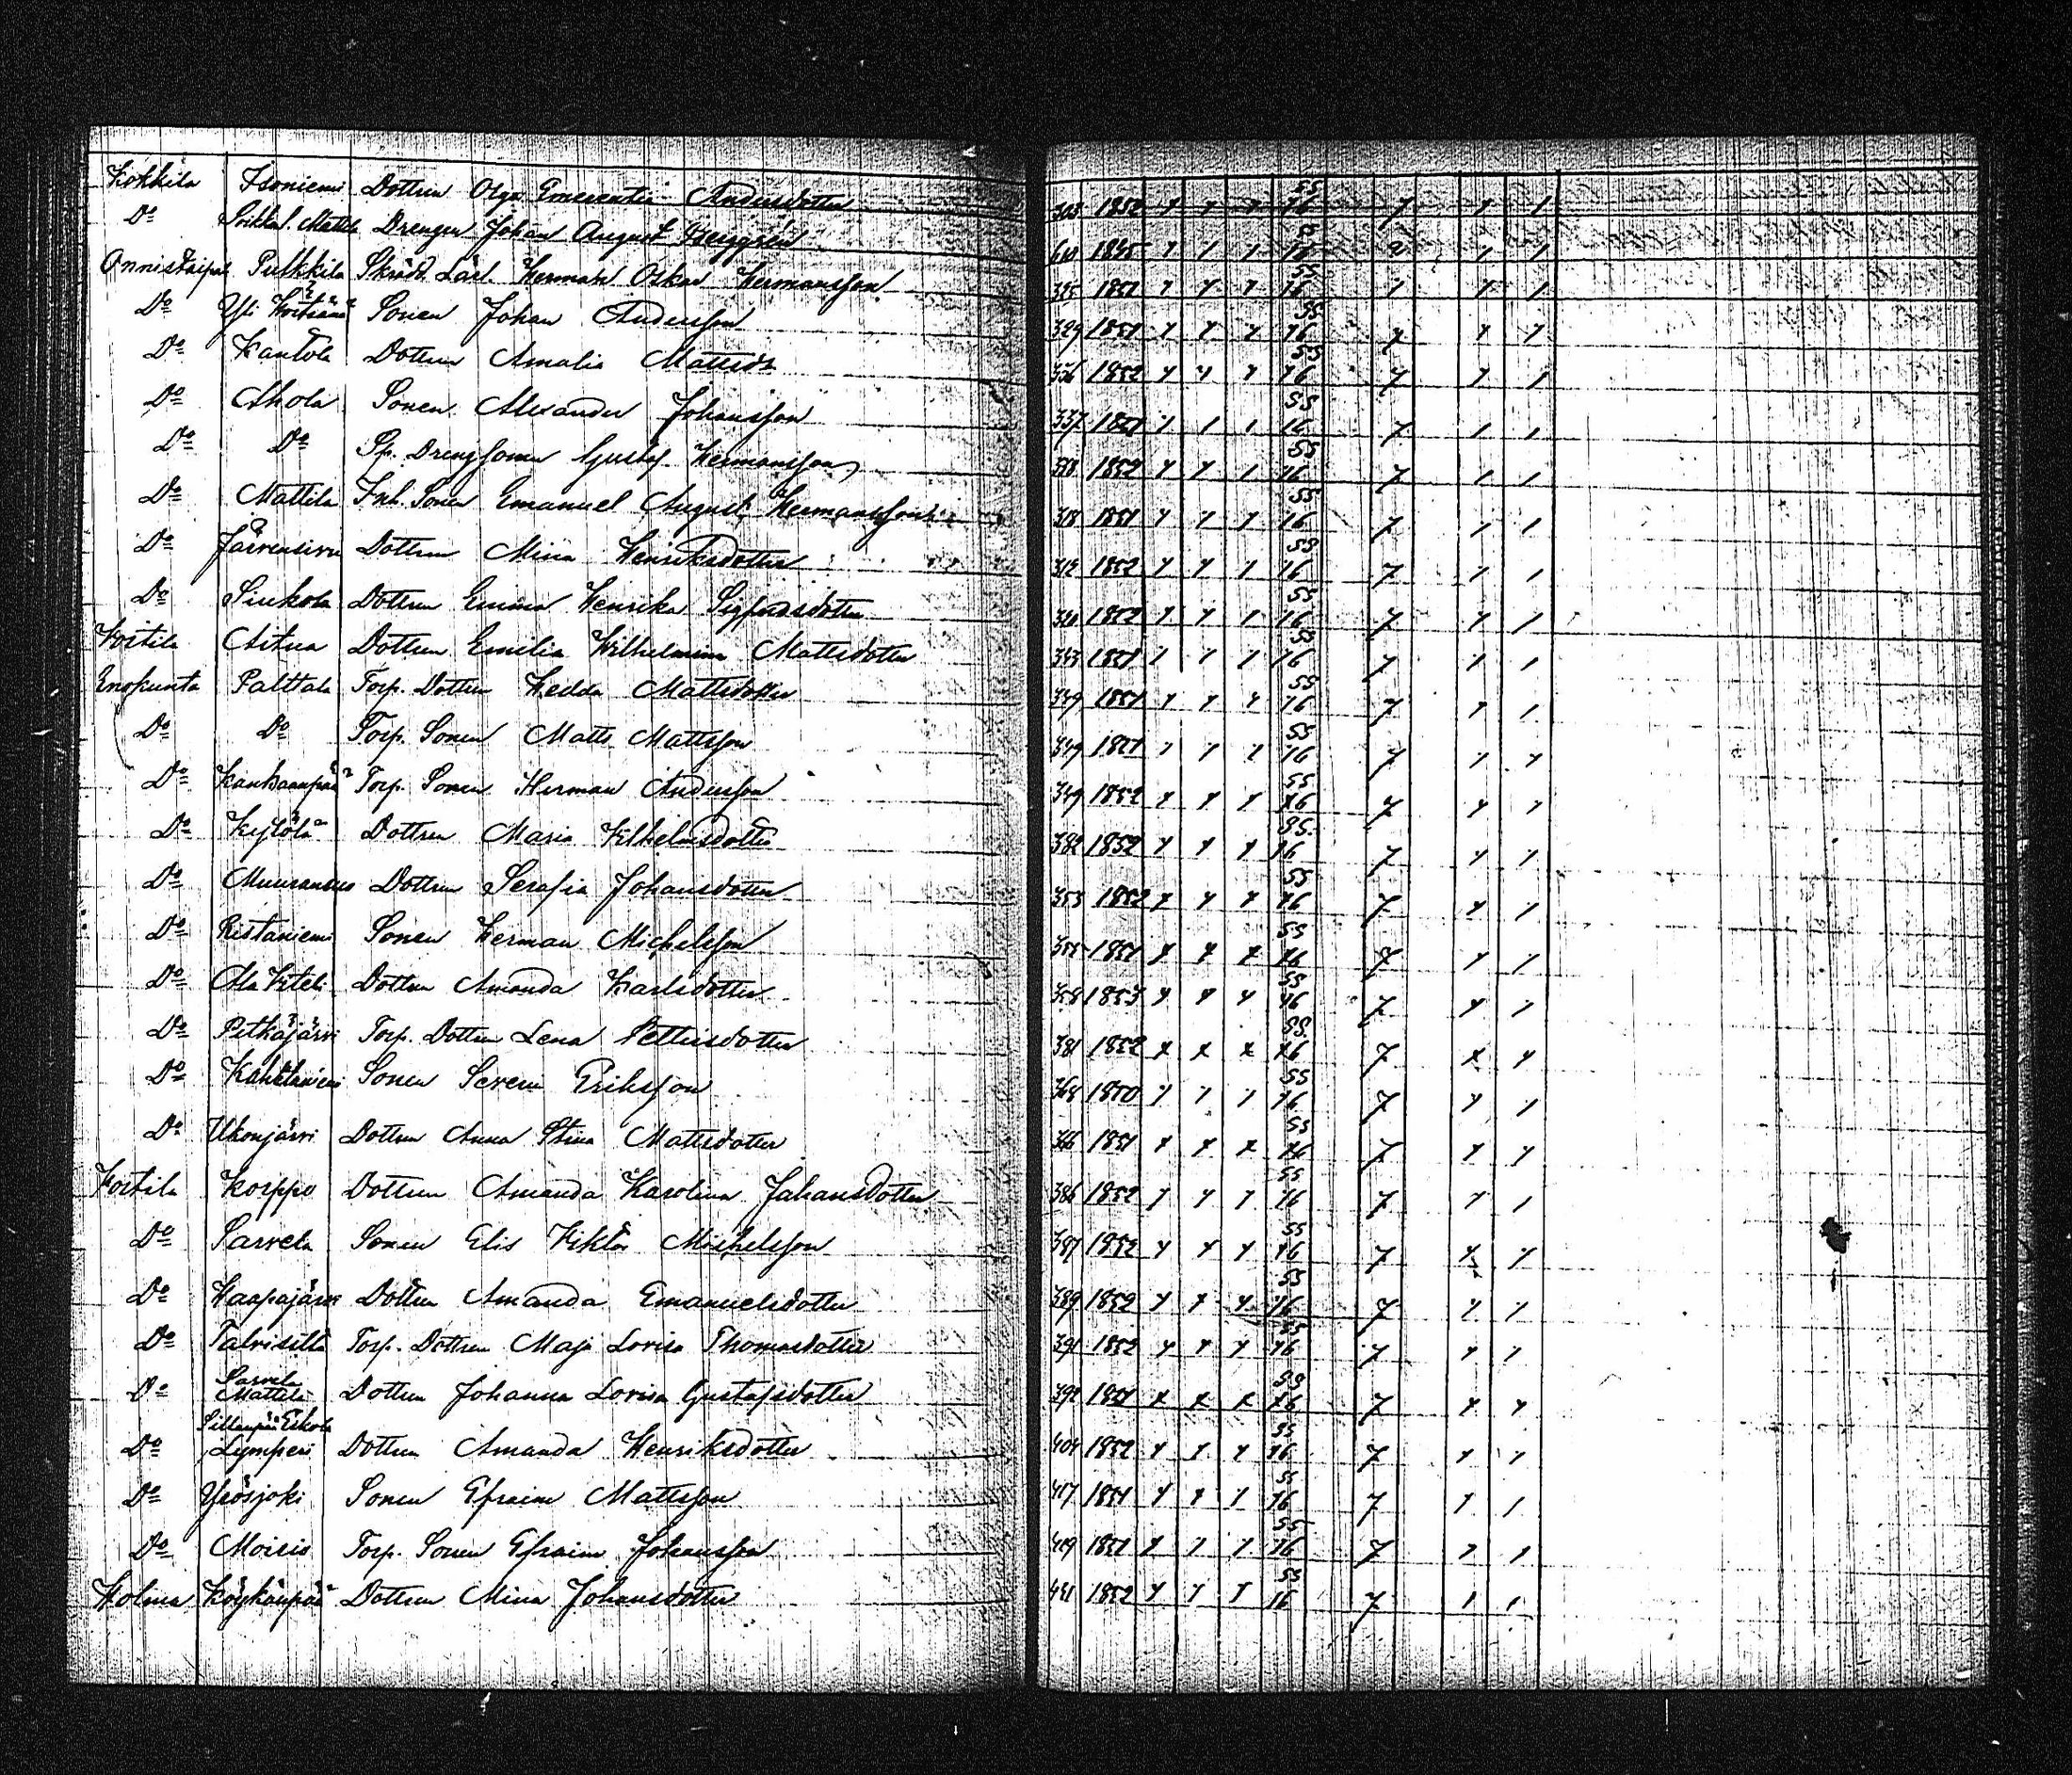 Kokkila Isoniemi Dottren Olga Emerentia Andersdotter 303 1852 1 1 1 55 16 7 1 1
Do Mattila Drengen Johan August Berggren 1845 1 1 1 55 16 2 1 1
Onnistaipal Pulkkila Skrädd. Lärl. Herman Oskar Hermansson 325 1851 1 1 1 55 16 1 1 1
Do Yli Sonen Johan Andersson 329 1851 1 1 1 55 16 7 1 1
Do Kantola Dottren Amalia Mattsdr 336 1852 1 1 1 55 16 7 1 1
Do Ahola Sonen Alexander Johansson 337 1851 1 1 1 55 16 7 1 1
Do Do Sp. Drengsonen Gustaf Hermansson 338 1852 1 1 1 55 16 7 1 1
Do Mattila Inh. Sonen Emanuel August Hermansson 318 1851 1 1 1 55 16 7 1 1
Do Järvensivu Dottren Mina Henriksdotter 312 1852 1 1 1 55 16 7 1 1
Do Sinkola Dottren Emma Henrika Sigfridsdotter 320 1852 1 1 1 55 16 7 1 1
Voitila Aitua Dottren Emilia Wilhelmina Mattsdotter 343 1851 1 1 1 55 16 7 1 1
Enokunta Palttala Torp. Dottren Hedda Mattsdotter 349 1851 1 1 1 55 16 7 1 1
Do Do Torp. Sonen Matts Mattsson 349 1851 1 1 1 55 16 7 1 1
Do Kankaanpää Torp. Sonen Herman Andersson 349 1852 1 1 1 55 16 7 1 1
Do Kylölä Dottren Maria Vilhelmsdotter 382 1852 1 1 1 55 16 7 1 1
Do Dottren Serafia Johansdotter 353 1852 1 1 1 55 16 7 1 1
Do Ristaniemi Sonen Herman Michelsson 355 1851 1 1 1 55 16 7 1 1
Do Ala Dottren Amanda Karlsdotter 358 1853 1 1 1 55 16 7 1 1
Do Pitkäjärvi Torp. Dottren Lena Pettersdotter 381 1852 1 1 1 55 16 7 1 1
Do Sonen Severin Eriksson 364 1850 1 1 1 55 16 7 1 1
Do Ukonjärvi Dottren Anna Stina Mattsdotter 366 1851 1 1 1 55 16 7 1 1
Voitila Korppo Dottren Amanda Karolina Johansdotter 386 1852 1 1 1 55 16 7 1 1
Do Sarvela Sonen Elis Viktor Michelsson 387 1852 1 1 1 55 16 7 1 1
Do Haapajärvi Dottren Amanda Emanuelsdotter 389 1852 1 1 1 55 16 7 1 1
Do Talvisilta Torp. Dottren Maja Lovisa Thomasdotter 391 1852 1 1 1 55 16 7 1 1
Do Sarvela Mattila Dottren Johanna Lovisa Gustafsdotter 392 1851 1 1 1 55 16 7 1 1
Sillanpää Eskola
Do Lymperi Dottren Amanda Henriksdotter 404 1852 1 1 1 55 16 7 1 1
Do Yrösjoki Sonen Efraim Mattsson 417 1851 1 1 1 55 16 7 1 1
Do Moisio Torp. Sonen Efraim Johansson 419 1851 1 1 1 55 16 7 1 1
Holma Köykänpää Dottren Mina Johansdotter 431 1852 1 1 1 55 16 7 1 1